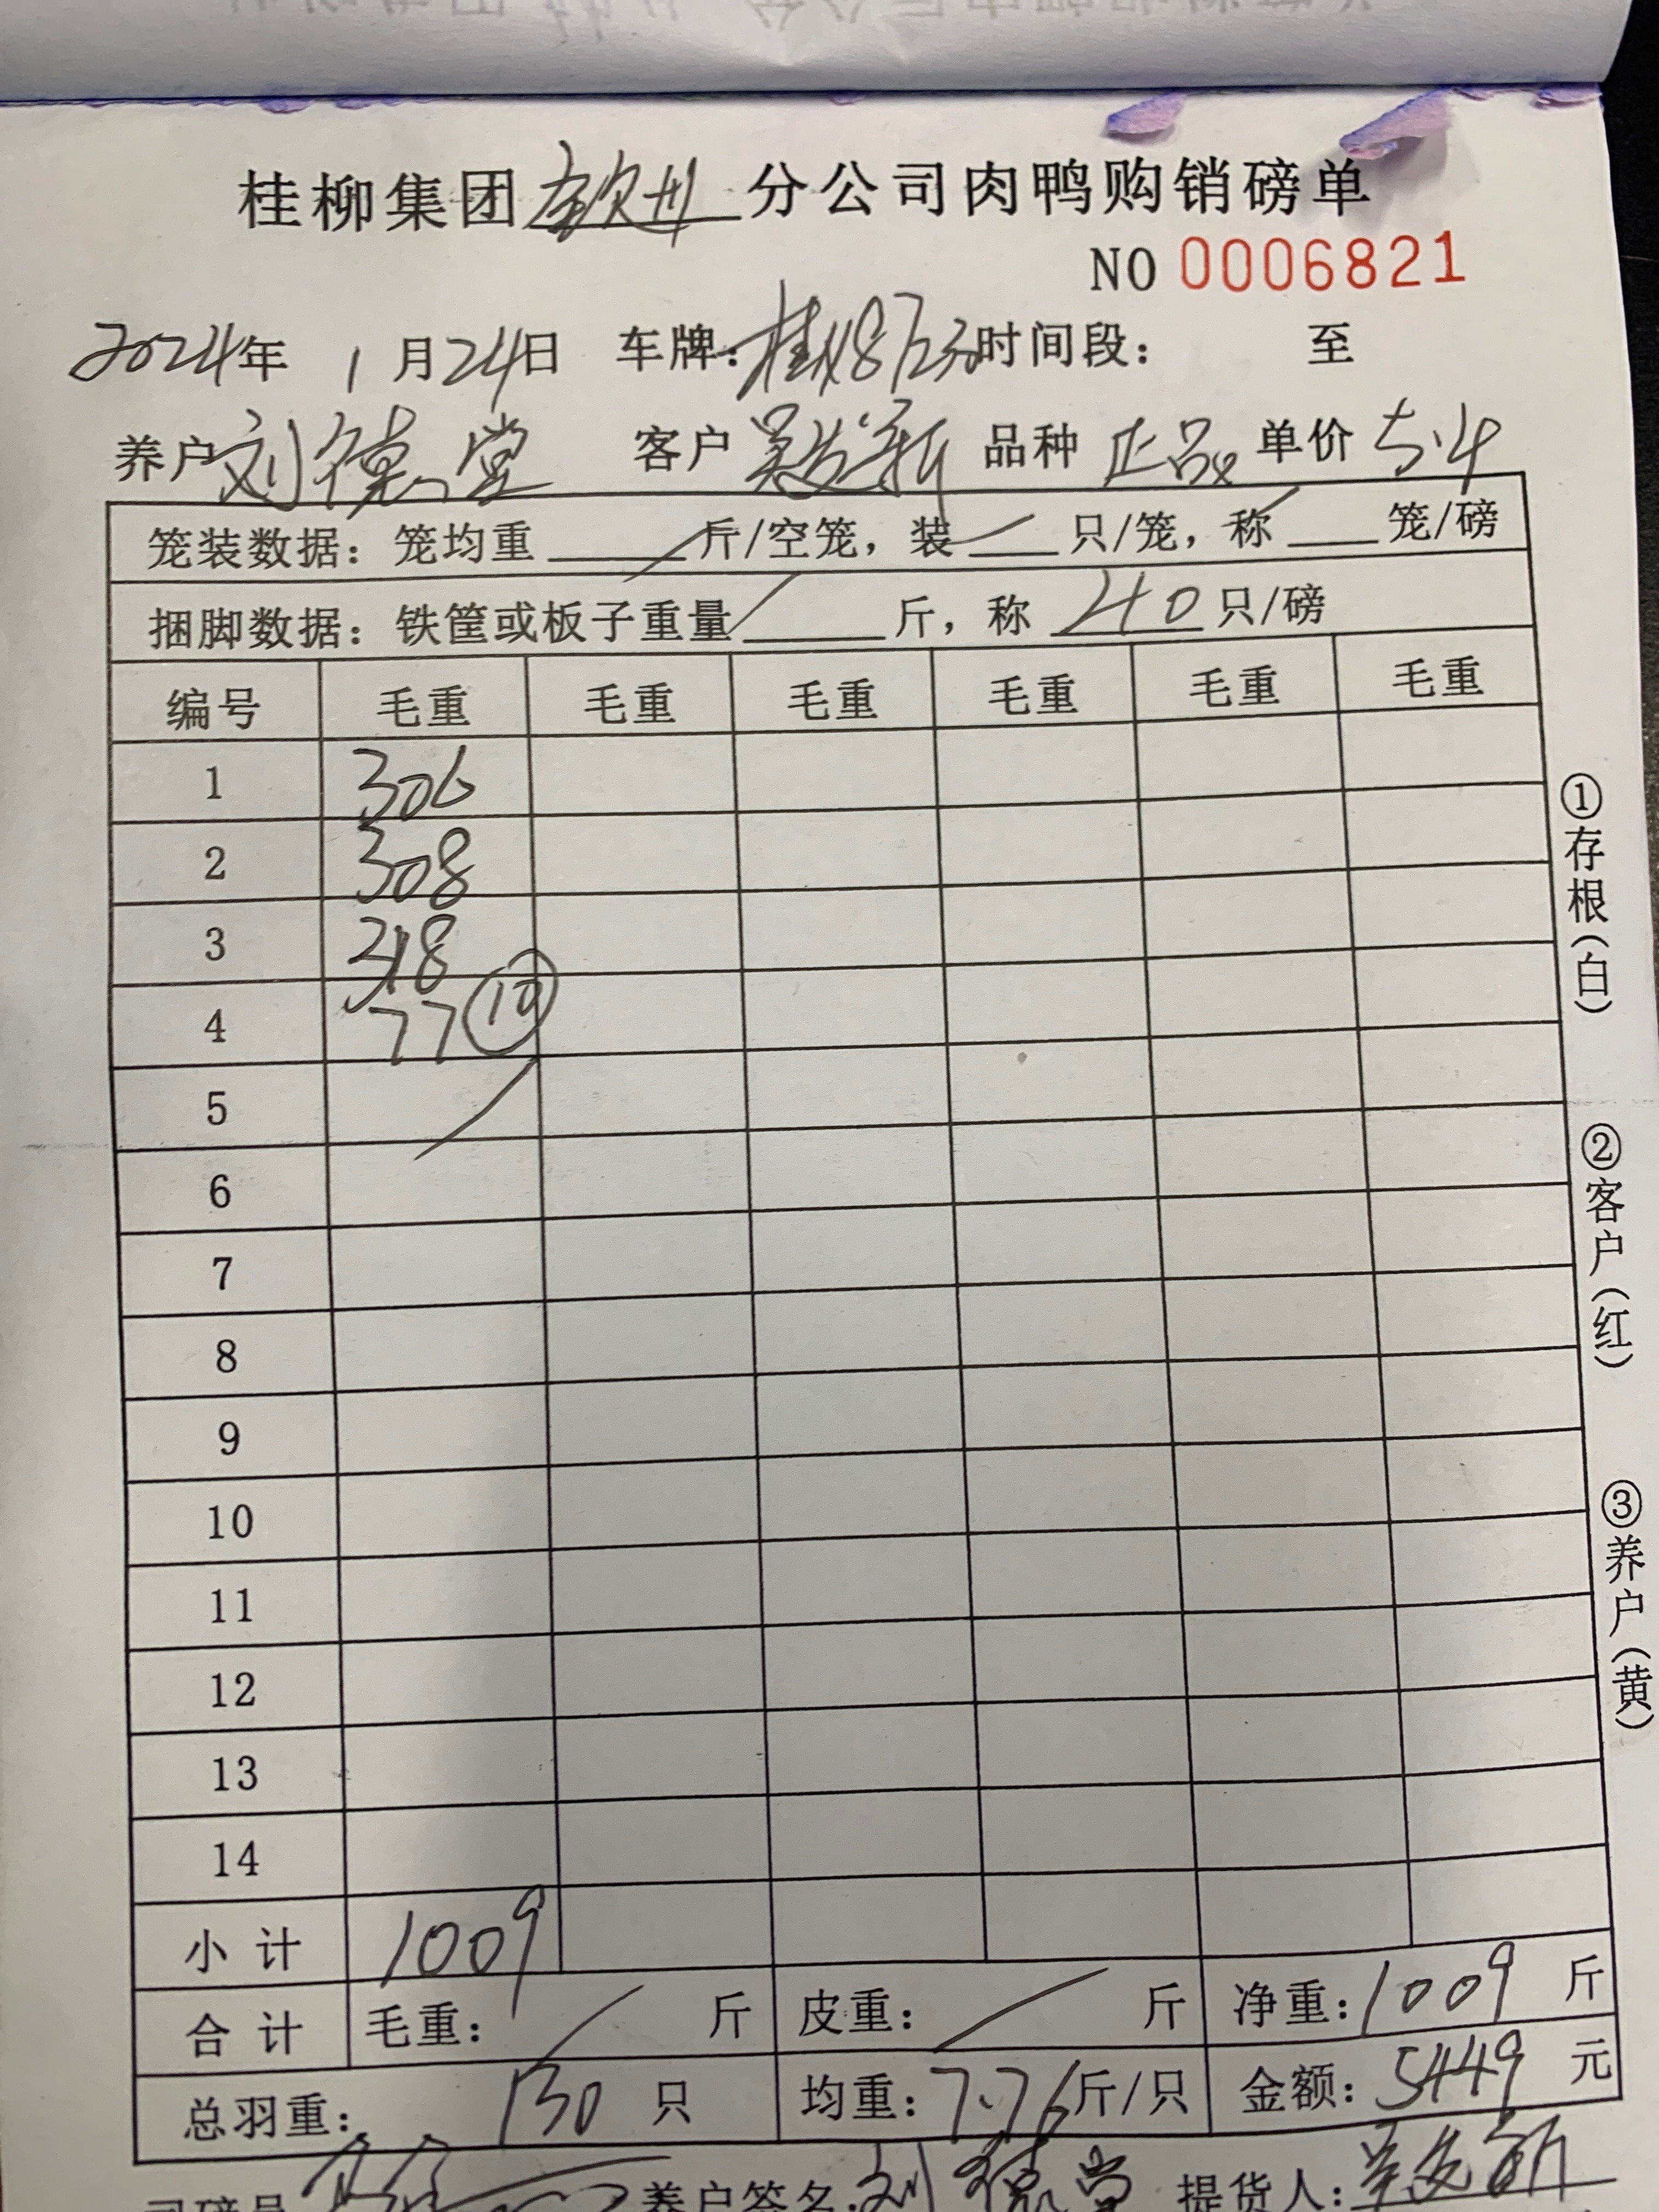 桂柳集团钦州分公司肉鸭购销磅单
NO 0006821
2024年 1月24日 车牌: 时间段: 至
养户 刘德堂 客户 吴发新 品种 正品 单价 5.4
笼装数据: 笼均重 斤/空笼, 装 只/笼, 称 笼/磅
捆脚数据: 铁筐或板子重量 斤, 称 40 只/磅
编号 毛重 毛重 毛重 毛重 毛重 毛重
1 306
2 308
3 318
4 77 ⑩
5
6
7
8
9
10
11
12
13
14
小计 1009
合计 毛重: 斤 皮重: 斤 净重: 1009 斤
总羽重: 130 只 均重: 7.76 斤/只 金额: 5449 元
司磅员 养户签名: 刘德堂 提货人: 吴发新
①存根(白)
②客户(红)
③养户(黄)